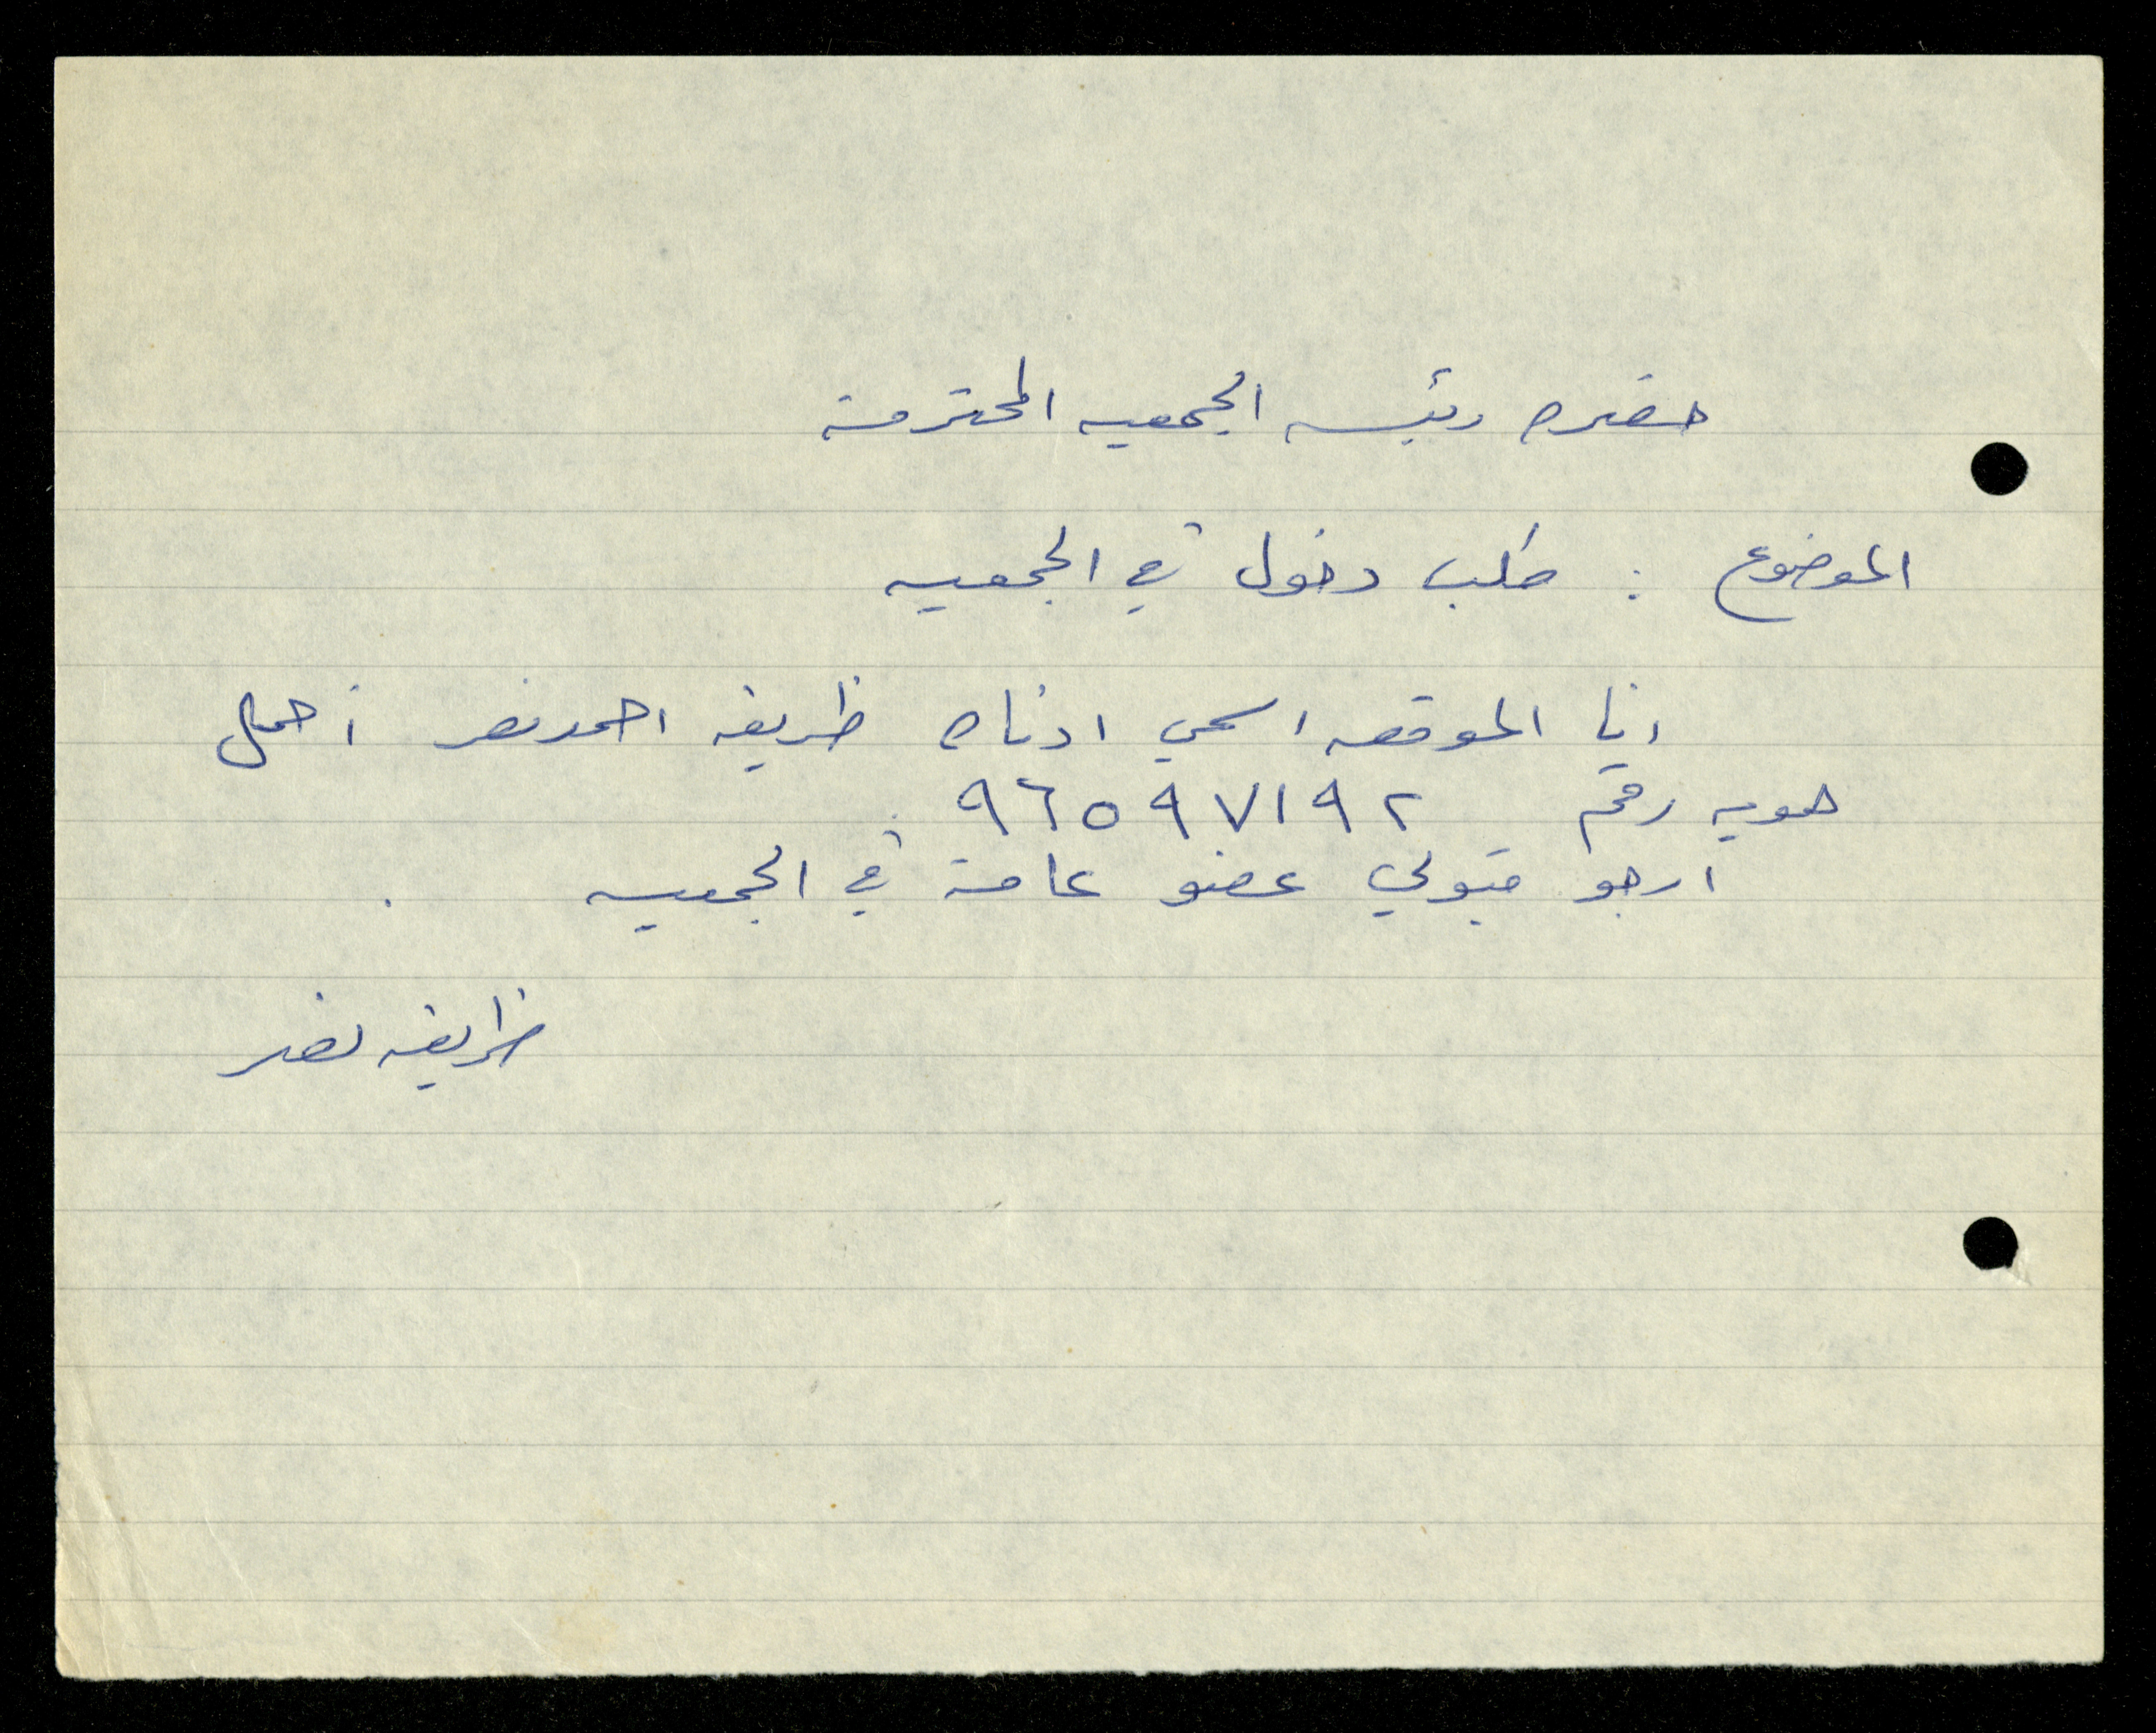 حضره رئيسه الجمعيه المحترمة
الموضوع : طلب دخول في الجمعيه
انا الموقعه اسمي ادناه ظريفه احمد نصر أحمل
هويه رقم ٩٦٥٩٧١٩٢
ارجو قبولي عضو عامة في الجمعيه .
ظريفه نصر